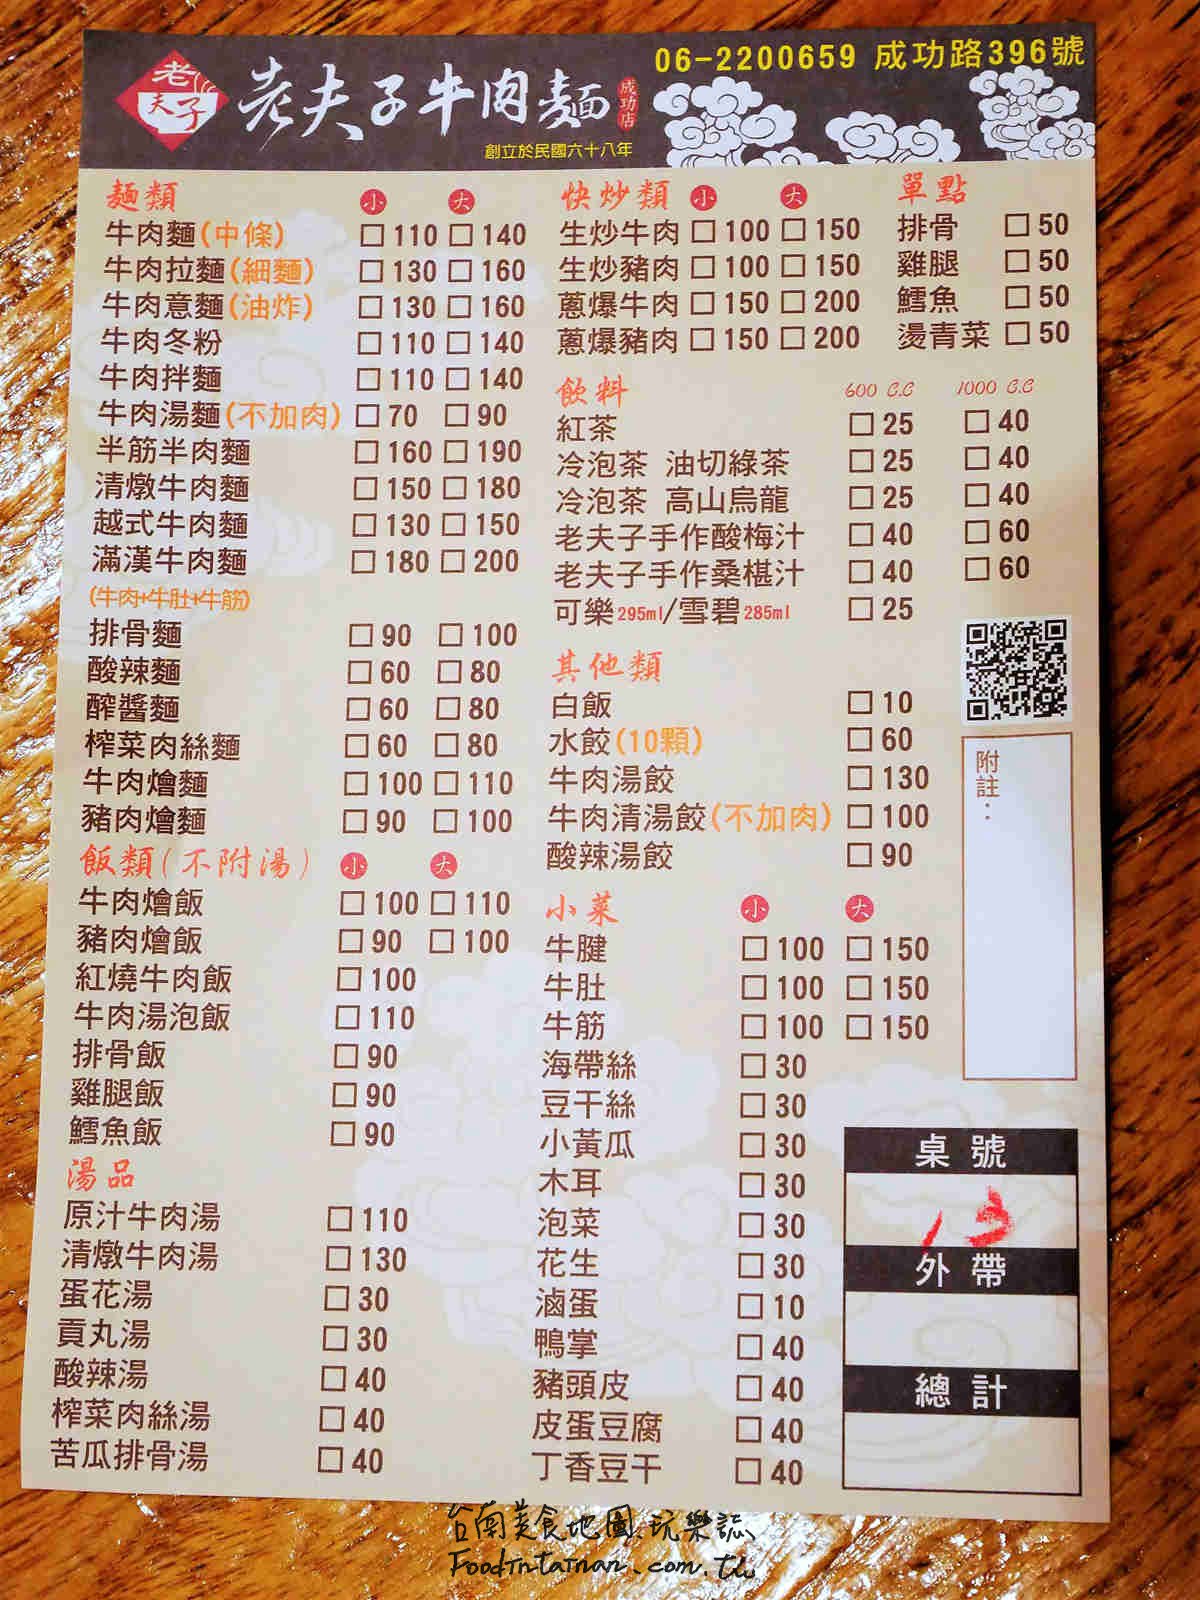 老夫子
老夫子牛肉麵
成功店
創立於民國六十八年
06-2200659 成功路396號
麵類 小 大
牛肉麵(中條) □110 □140
牛肉拉麵(細麵) □130 □160
牛肉意麵(油炸) □130 □160
牛肉冬粉 □110 □140
牛肉拌麵 □110 □140
牛肉湯麵(不加肉) □70 □90
半筋半肉麵 □160 □190
清燉牛肉麵 □150 □180
越式牛肉麵 □130 □150
滿漢牛肉麵 □180 □200
(牛肉+牛肚+牛筋)
排骨麵 □90 □100
酸辣麵 □60 □80
醡醬麵 □60 □80
榨菜肉絲麵 □60 □80
牛肉燴麵 □100 □110
豬肉燴麵 □90 □100
飯類(不附湯) 小 大
牛肉燴飯 □100 □110
豬肉燴飯 □90 □100
紅燒牛肉飯 □100
牛肉湯泡飯 □110
排骨飯 □90
雞腿飯 □90
鱈魚飯 □90
湯品
原汁牛肉湯 □110
清燉牛肉湯 □130
蛋花湯 □30
貢丸湯 □30
酸辣湯 □40
榨菜肉絲湯 □40
苦瓜排骨湯 □40
快炒類 小 大
生炒牛肉 □100 □150
生炒豬肉 □100 □150
蔥爆牛肉 □150 □200
蔥爆豬肉 □150 □200
單點
排骨 □50
雞腿 □50
鱈魚 □50
燙青菜 □50
飲料 600 C.C 1000 C.C
紅茶 □25 □40
冷泡茶 油切綠茶 □25 □40
冷泡茶 高山烏龍 □25 □40
老夫子手作酸梅汁 □40 □60
老夫子手作桑椹汁 □40 □60
可樂295ml/雪碧285ml □25
其他類
白飯 □10
水餃(10顆) □60
牛肉湯餃 □130
牛肉清湯餃(不加肉) □100
酸辣湯餃 □90
小菜 小 大
牛腱 □100 □150
牛肚 □100 □150
牛筋 □100 □150
海帶絲 □30
豆干絲 □30
小黃瓜 □30
木耳 □30
泡菜 □30
花生 □30
滷蛋 □10
鴨掌 □40
豬頭皮 □40
皮蛋豆腐 □40
丁香豆干 □40
附註：
桌號
13
外帶
總計
台南美食地圖.玩樂誌
FoodInTainan.com.tw